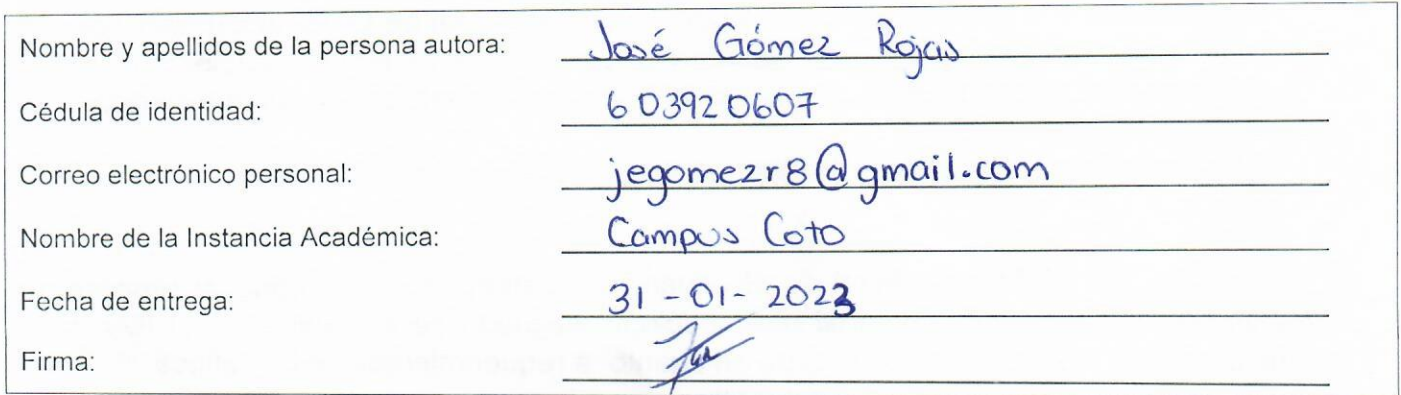 Nombre y apellidos de la persona autora: José Gómez Rojas
Cédula de identidad: 603920607
Correo electrónico personal: jegomezr8@gmail.com
Nombre de la Instancia Académica: Campus Coto
Fecha de entrega: 31-01-2023
Firma: